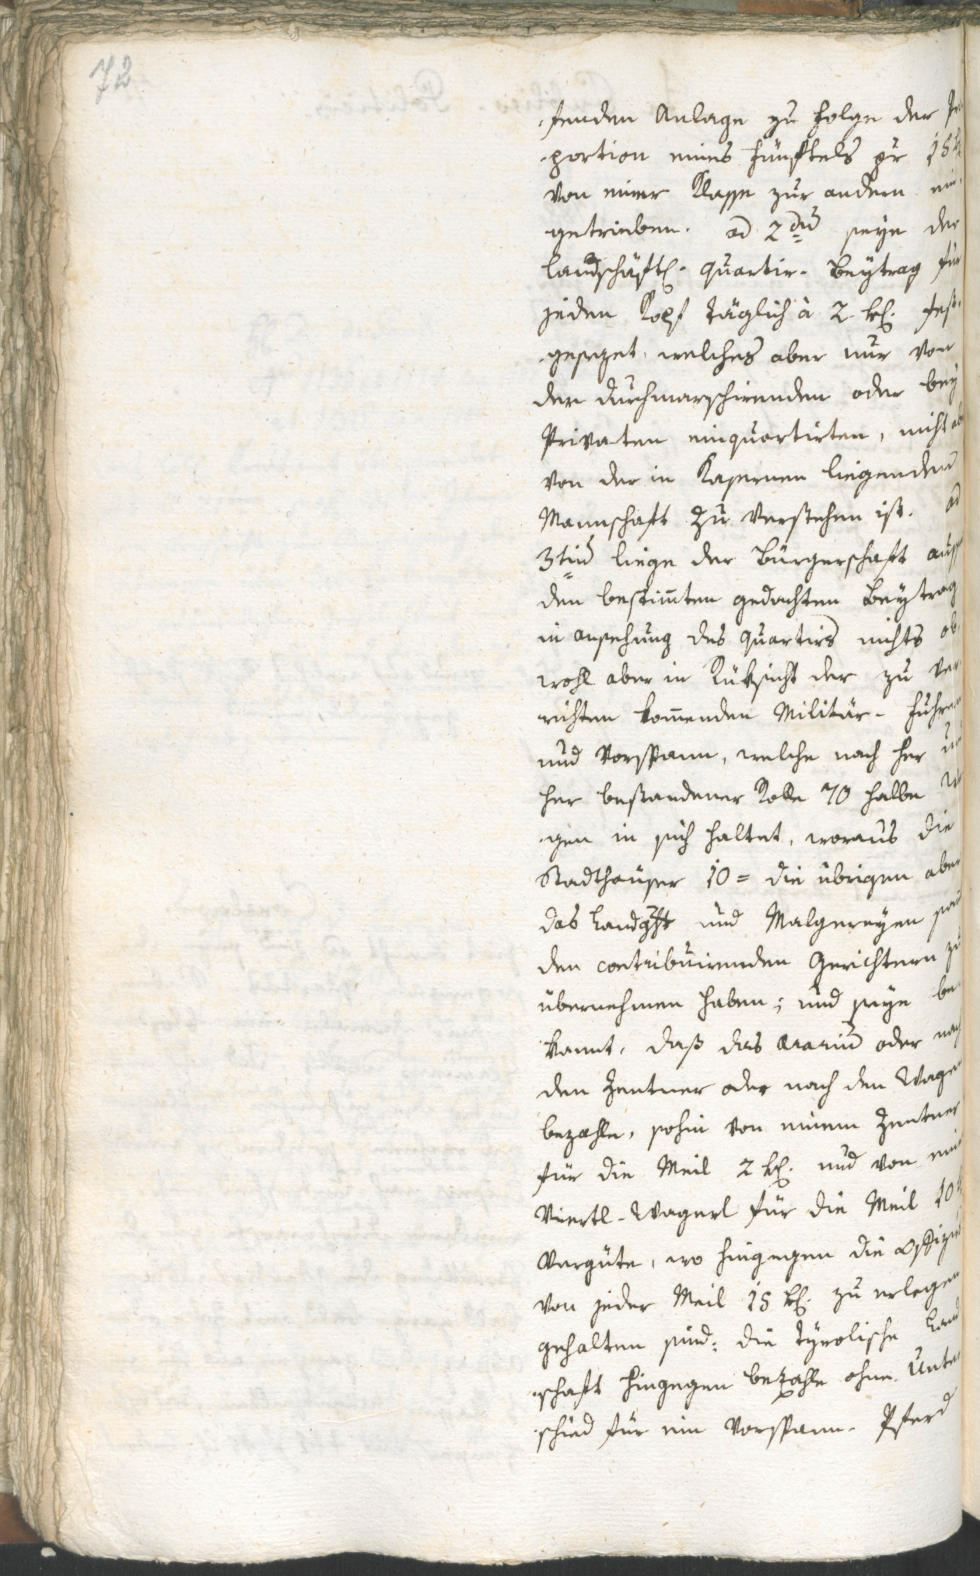 72
fenden Anlage zu folge der Pro
portion eines fünftels pr 15 k
von einer Klasse zur andern ein
getrieben. ad 2dũ seye der
Landschäftl. Quartir- Beÿtrag für
jeden Kopf täglich à 2 kr. fest
gesezet, welches aber nur von
der durchmarschirenden oder beÿ
Privaten einquartirten, nicht ab
von der in Kasernen liegenden
Mannschaft zu verstehen ist. ad
3tiũ liege der Bürgerschaft auss
den bestim̃ten gedachten Beÿtrag
in ansehung des Quartirs nichts ob
wohl aber in Rüksicht der zu ver
richten kom̃enden Militär- Fuhren
und Vorspann, welche nach her un
her bestandener Rolle 70 halbe Wä
gen in sich haltet, woraus die
Stadthäuser 10 = die übrigen aber
das Landgft und Malgreÿen samt
den contribuirenden Gerichtern zu
übernehmen haben; und seye be
kannt, daß das Ararium oder nach
den Zentner oder nach den Wagen
bezahle, sohin von einem Zentner
für die Meil 2 kr. und von ein
Viertl-Wagerl für die Meil 10 k
vergüte, wo hingegen die Offizier
von jeder Meil 15 kr. zu erlegen
gehalten sind: die Tÿrolische Land
schaft hingegen bezahle ohne Unter
schied für ein Vorspann- Pferd